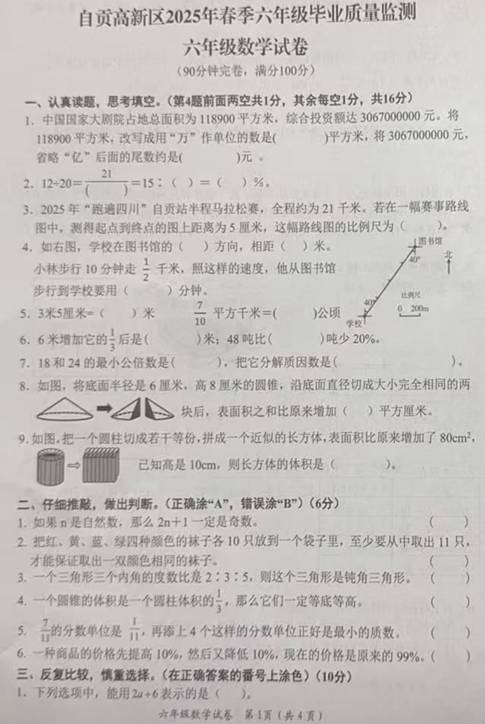 自贡高新区2025年春季六年级毕业质量监测
六年级数学试卷
(90分钟完卷，满分100分)
一、认真读题，思考填空。（第4题前面两空共1分，其余每空1分，共16分）
1. 中国国家大剧院占地总面积为118900平方米，综合投资额达3067000000元。将
118900平方米，改写成用“万”作单位的数是( )平方米，将3067000000元，
省略“亿”后面的尾数约是( )元 。
2. 12÷20=21/( )=15：( )=( )%。
3. 2025年“跑遍四川”自贡站半程马拉松赛，全程约为21千米。若在一幅赛事路线
图中，测得起点到终点的图上距离为5厘米，这幅路线图的比例尺为( )。
4. 如右图，学校在图书馆的( )方向，相距( )米。
小林步行10分钟走1/2千米，照这样的速度，他从图书馆
步行到学校要用( )分钟。
图书馆
北
40°
40°
比例尺
0 200m
学校
5. 3米5厘米=( )米 7/10平方千米=( )公顷
6. 6米增加它的1/3后是( )米；48吨比( )吨少20%。
7. 18和24的最小公倍数是( )，把它分解质因数是( )。
8. 如图，将底面半径是6厘米，高8厘米的圆锥，沿底面直径切成大小完全相同的两
块后，表面积之和比原来增加( )平方厘米。
9. 如图，把一个圆柱切成若干等份，拼成一个近似的长方体，表面积比原来增加了80cm²，
已知高是10cm，则长方体的体积是( )。
二、仔细推敲，做出判断。（正确涂“A”，错误涂“B”）（6分）
1. 如果n是自然数，那么2n+1一定是奇数。 ( )
2. 把红、黄、蓝、绿四种颜色的袜子各10只放到一个袋子里，至少要从中取出11只，
才能保证取出一双颜色相同的袜子。 ( )
3. 一个三角形三个内角的度数比是2：3：5，则这个三角形是钝角三角形。 ( )
4. 一个圆锥的体积是一个圆柱体积的1/3，那么它们一定等底等高。 ( )
5. 7/11的分数单位是1/11，再添上4个这样的分数单位正好是最小的质数。 ( )
6. 一种商品的价格先提高10%，然后又降低10%，现在的价格是原来的99%。( )
三、反复比较，慎重选择。（在正确答案的番号上涂色）（10分）
1. 下列选项中，能用2a+6表示的是( )。
六年级数学试卷 第1页（共4页）